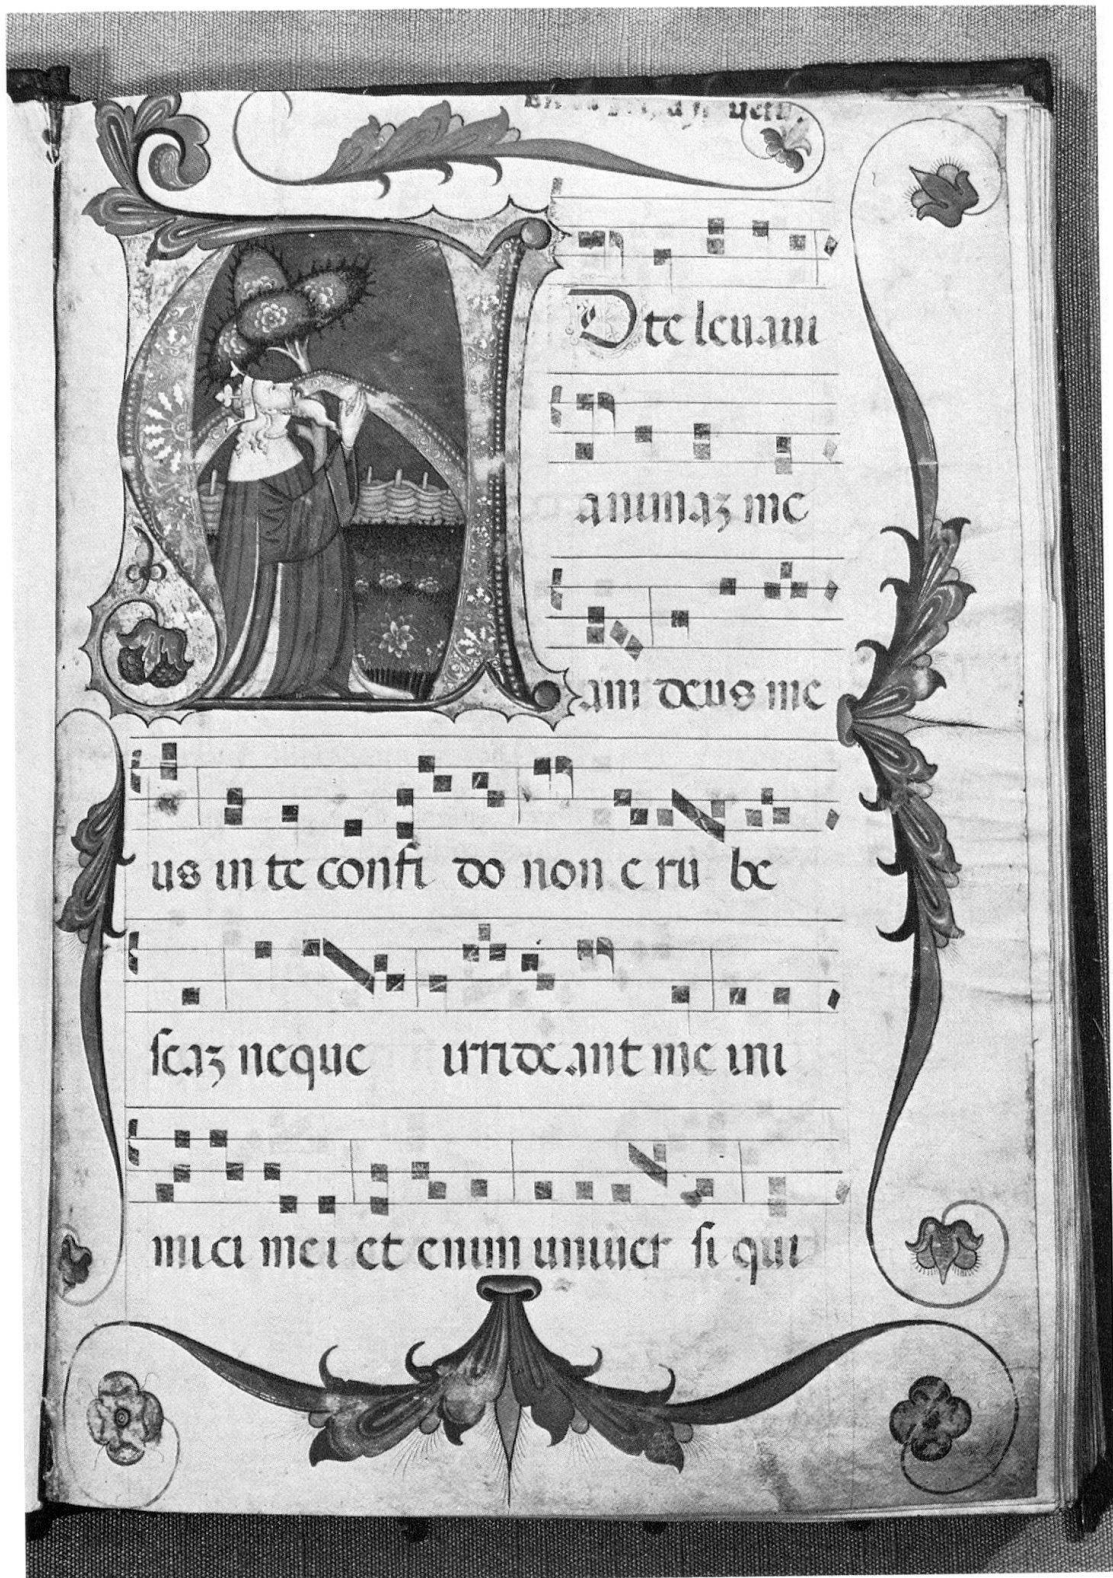 A
D te leuaui
animaʒ me
am deus me
us in te confi do non e ru be
ſcaʒ neque irrideant me ini
mici mei et enim uniuer si qui